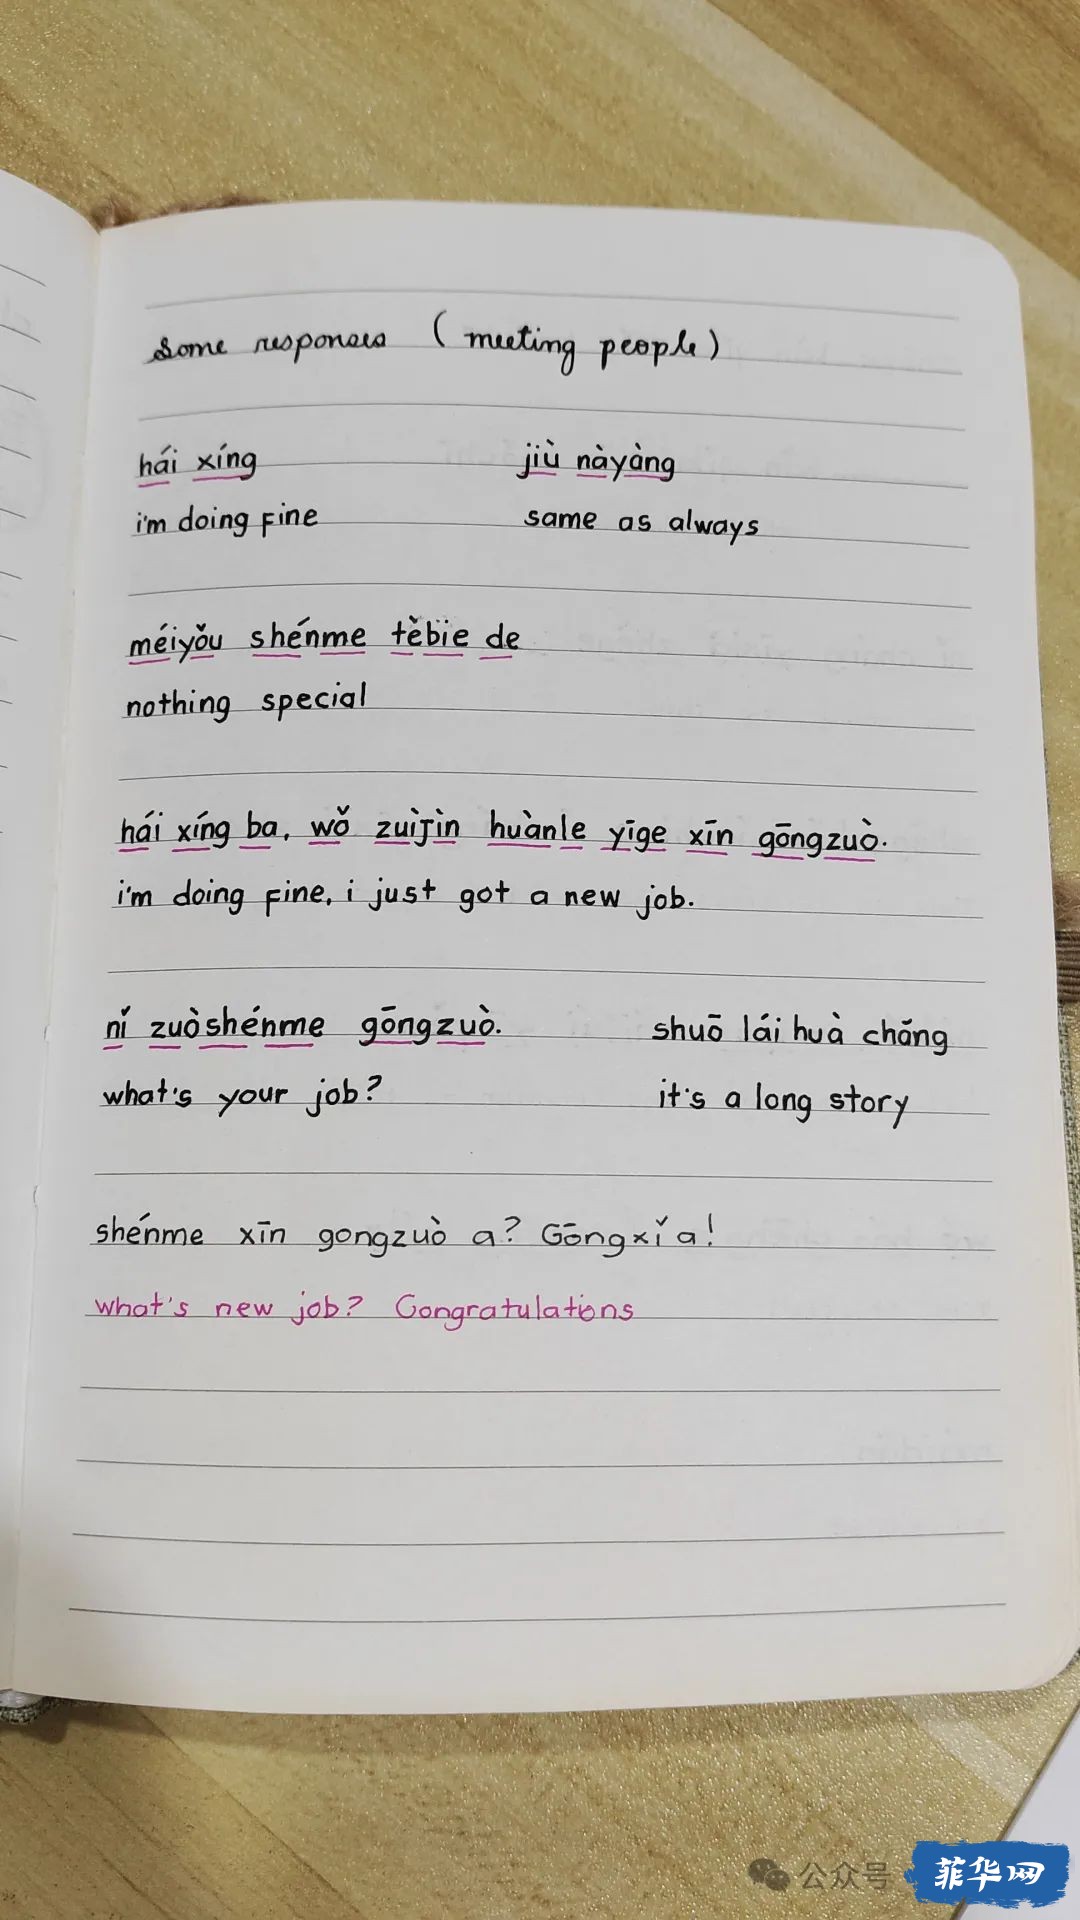 some responses (meeting people)
hái xíng
jiù nàyàng
i'm doing fine
same as always
méiyǒu shénme tèbie de
nothing special
hái xíng ba, wǒ zuìjìn huànle yīge xīn gōngzuò.
i'm doing fine, i just got a new job.
nǐ zuò shénme gōngzuò.
shuō lái huà chǎng
what's your job?
it's a long story
shénme xīn gongzuò a? Gōngxǐ a!
what's new job? Congratulations
公众号
菲华网